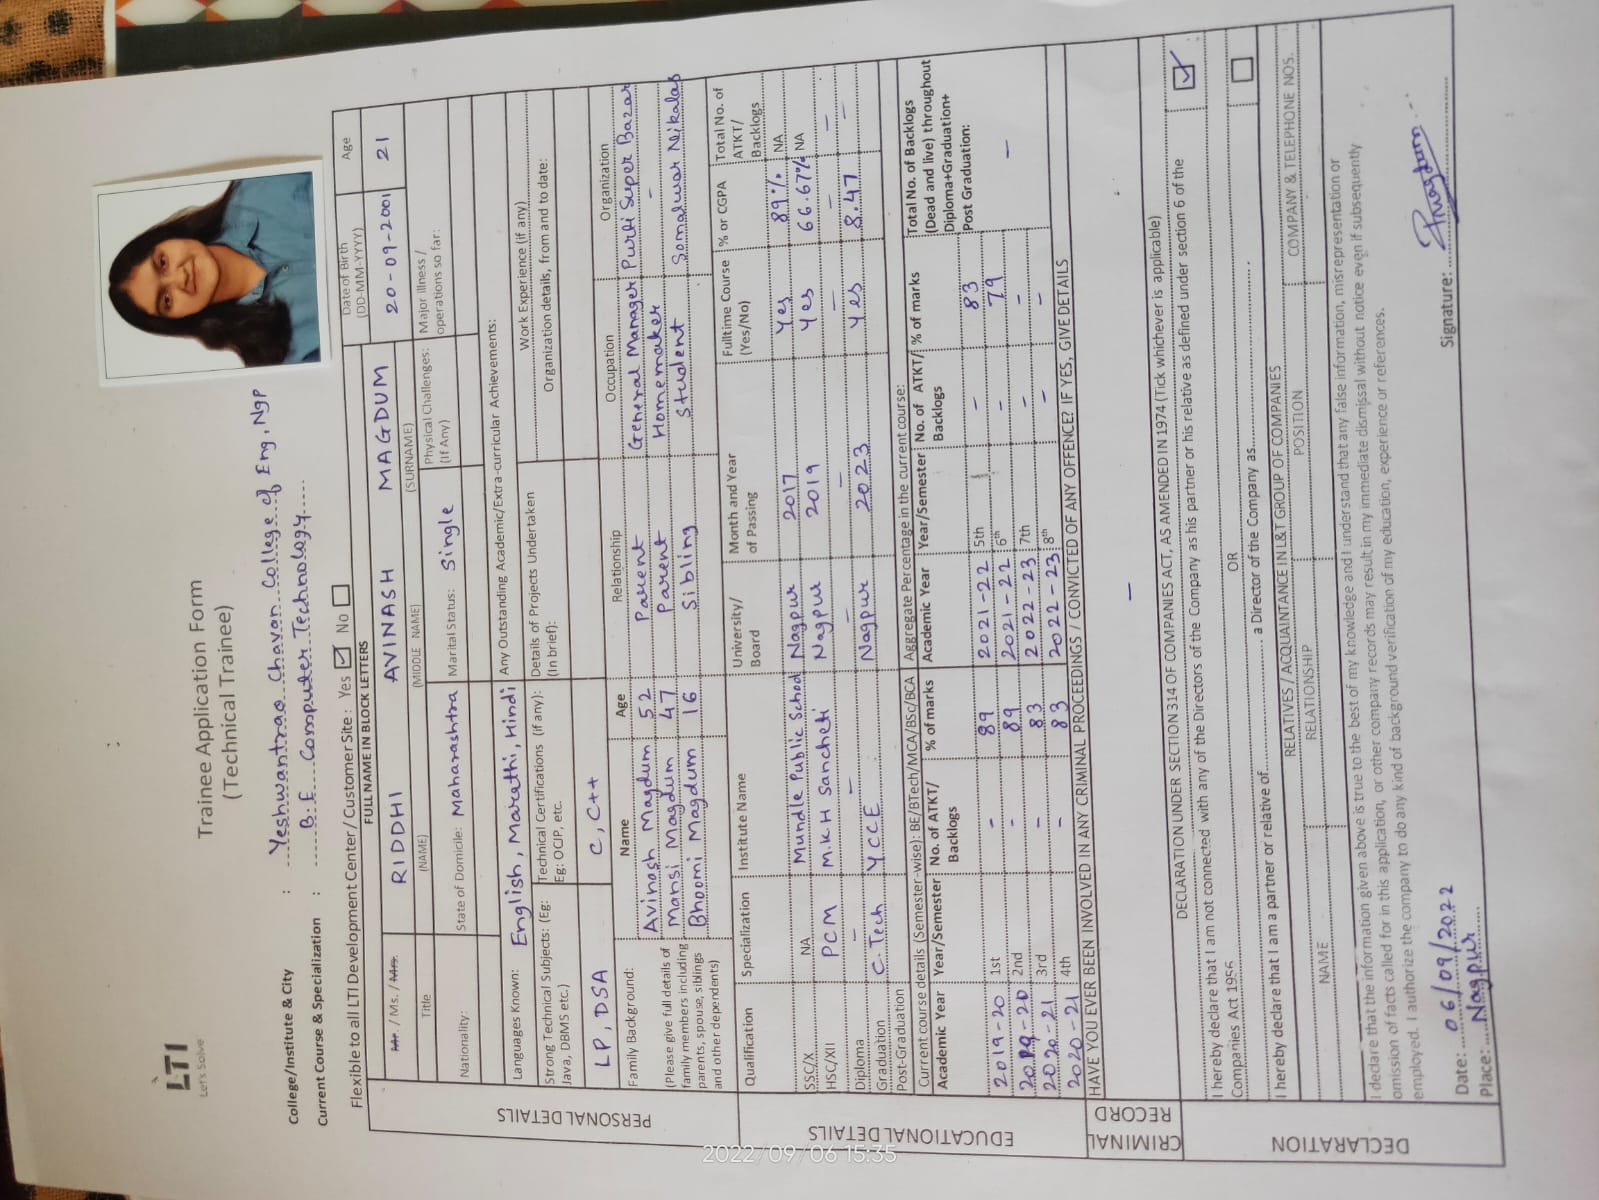 LTI
Let's Solve
Trainee Application Form
(Technical Trainee)
College/Institute & City : Yeshwantrao Chavan College of Eng, Ngp
Current Course & Specialization : B.E. Computer Technology
Flexible to all LTI Development Center / Customer Site : Yes ☑ No ☐
FULL NAME IN BLOCK LETTERS
Date of Birth (DD-MM-YYYY) Age
Mr. / Ms. / Mrs. RIDDHI AVINASH MAGDUM 20-09-2001 21
Title (NAME) (MIDDLE NAME) (SURNAME)
PERSONAL DETAILS
Nationality: State of Domicile: Maharashtra Marital Status: Single Physical Challenges: (If Any) Major Illness / operations so far:
Languages Known: English, Marathi, Hindi Any Outstanding Academic/Extra-curricular Achievements:
Strong Technical Subjects: (Eg: Java, DBMS etc.) Technical Certifications (if any): Eg: OCJP, etc. Details of Projects Undertaken (In brief): Work Experience (if any)
Organization details, from and to date:
LP, DSA C, C++
Family Background: Name Age Relationship Occupation Organization
(Please give full details of family members including parents, spouse, siblings and other dependents)
Avinash Magdum 52 Parent General Manager Purti Super Bazar
Mansi Magdum 47 Parent Homemaker -
Bhoomi Magdum 16 Sibling Student Somalwar Nikalas
EDUCATIONAL DETAILS
Qualification Specialization Institute Name University/ Board Month and Year of Passing Fulltime Course (Yes/No) % or CGPA Total No. of ATKT/ Backlogs
SSC/X NA Mundle Public School Nagpur 2017 Yes 89% NA
HSC/XII PCM M.K.H Sancheti Nagpur 2019 Yes 66.67% NA
Diploma - - - - - - -
Graduation C. Tech YCCE Nagpur 2023 Yes 8.47 -
Post-Graduation
Current course details (Semester-wise): BE/BTech/MCA/BSc/BCA Aggregate Percentage in the current course:
Academic Year Year/Semester No. of ATKT/ Backlogs % of marks Academic Year Year/Semester No. of ATKT/ Backlogs % of marks Total No. of Backlogs (Dead and live) throughout Diploma+Graduation+ Post Graduation:
2019-20 1st - 89 2021-22 5th - 83 -
2019-20 2nd - 89 2021-22 6th - 79
2020-21 3rd - 83 2022-23 7th - -
2020-21 4th - 83 2022-23 8th - -
CRIMINAL RECORD
HAVE YOU EVER BEEN INVOLVED IN ANY CRIMINAL PROCEEDINGS / CONVICTED OF ANY OFFENCE? IF YES, GIVE DETAILS
-
DECLARATION
DECLARATION UNDER SECTION 314 OF COMPANIES ACT, AS AMENDED IN 1974 (Tick whichever is applicable)
I hereby declare that I am not connected with any of the Directors of the Company as his partner or his relative as defined under section 6 of the Companies Act 1956 ☑
OR
I hereby declare that I am a partner or relative of.......... a Director of the Company as.......... ☐
RELATIVES / ACQUAINTANCE IN L&T GROUP OF COMPANIES
NAME RELATIONSHIP POSITION COMPANY & TELEPHONE NOS.
I declare that the information given above is true to the best of my knowledge and I understand that any false information, misrepresentation or
omission of facts called for in this application, or other company records may result in my immediate dismissal without notice even if subsequently
employed. I authorize the company to do any kind of background verification of my education, experience or references.
Date: 06/09/2022
Place: Nagpur
Signature:
2022/09/06 15:35